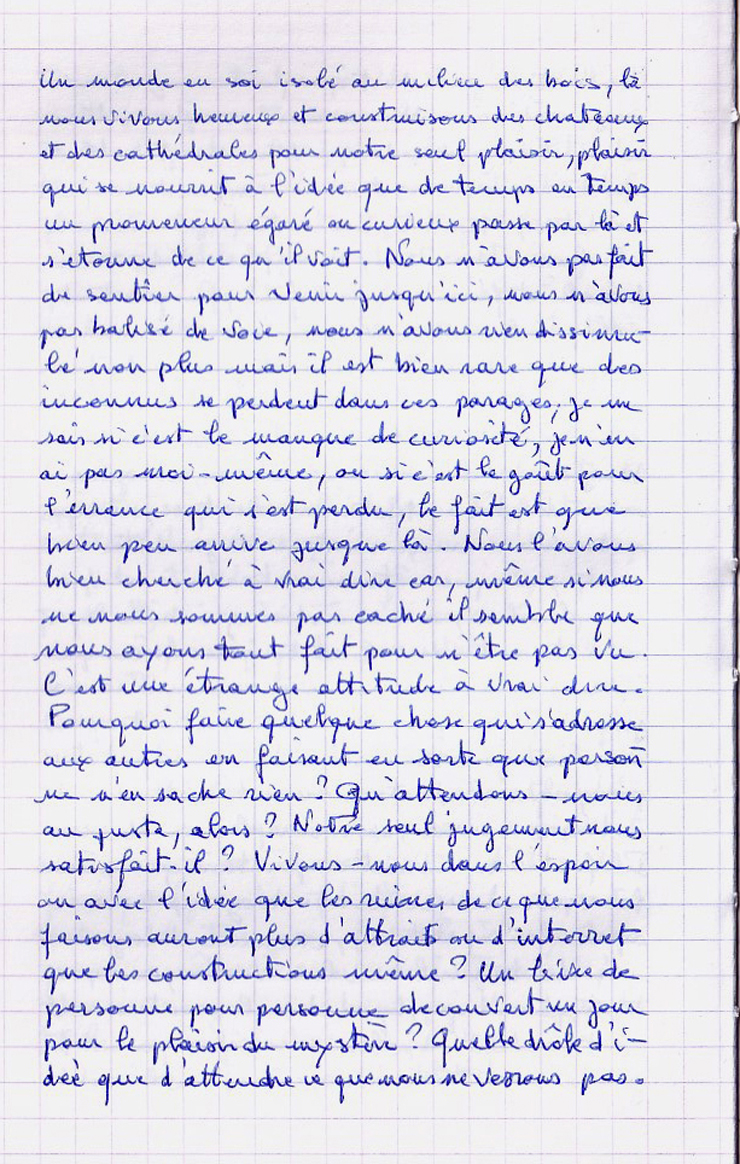 Un monde en soi isolé au milieu des bois, là
nous vivons heureux et construisons des chateaux
et des cathédrales pour notre seul plaisir, plaisir
qui se nourrit à l'idée que de temps en temps
un promeneur égaré ou curieux passe par là et
s'étonne de ce qu'il voit. Nous n'avons pas fait
de sentier pour venir jusqu'ici, nous n'avons
pas balisé de voie, nous n'avons rien dissimu-
lé non plus mais il est bien rare que des
inconnus se perdent dans ces parages, je ne
sais si c'est le manque de curiosité, je n'en
ai pas moi-même, ou si c'est le goût pour
l'errance qui s'est perdu, le fait est que
bien peu arrive jusque là. Nous l'avons
bien cherché à vrai dire car, même si nous
ne nous sommes pas caché il semble que
nous ayons tout fait pour n'être pas vu.
C'est une étrange attitude à vrai dire.
Pourquoi faire quelque chose qui s'adresse
aux autres en faisant en sorte que person
ne n'en sache rien ? Qu'attendons-nous
au juste, alors ? Notre seul jugement nous
satisfait-il ? Vivons-nous dans l'espoir
ou avec l'idée que les ruines de ce que nous
faisons auront plus d'attraits ou d'interret
que les constructions même ? Un de
personne pour personne decouvert un jour
pour le plaisir du mystère ? Quelle drôle d'i-
dée que d'attendre ce que nous ne verrons pas.